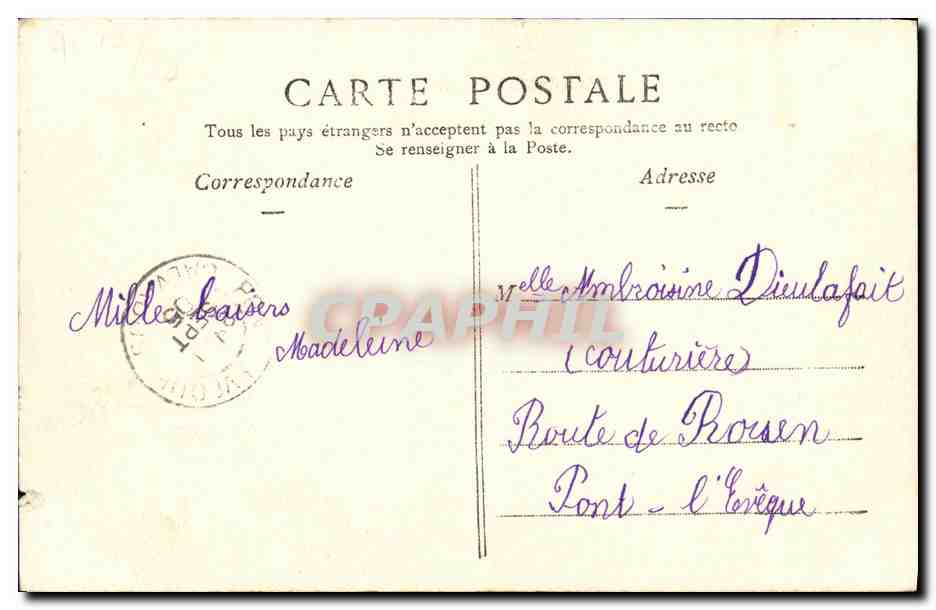 CARTE POSTALE
Tous les pays étrangers n'acceptent pas la correspondance au recto
Se renseigner à la Poste.
Correspondance
Adresse
Mille baisers
Madeleine
Melle Ambroisine Dieulafait
(couturière)
Route de Rouen
Pont-l'Evêque
CPAPHIL
SEPT
05